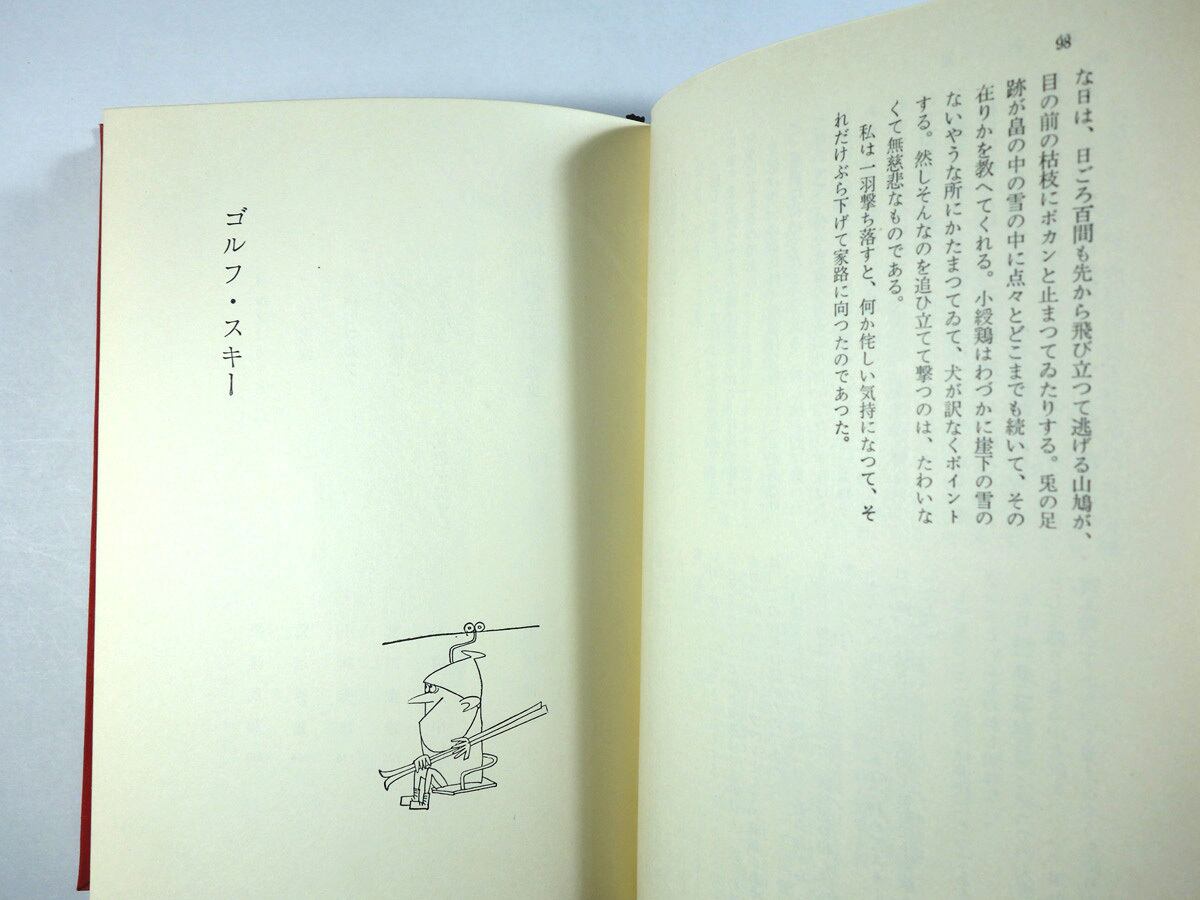 98
な日は、日ごろ百間も先から飛び立つて逃げる山鳩が、
目の前の枯枝にボカンと止まつてゐたりする。兎の足
跡が畠の中の雪の中に点々とどこまでも続いて、その
在りかを教へてくれる。小綬鶏はわづかに崖下の雪の
ないやうな所にかたまつてゐて、犬が訳なくポイント
する。然しそんなのを追ひ立てて撃つのは、たわいな
くて無慈悲なものである。
私は一羽撃ち落すと、何か侘しい気持になつて、そ
れだけぶら下げて家路に向つたのであつた。
ゴルフ・スキー